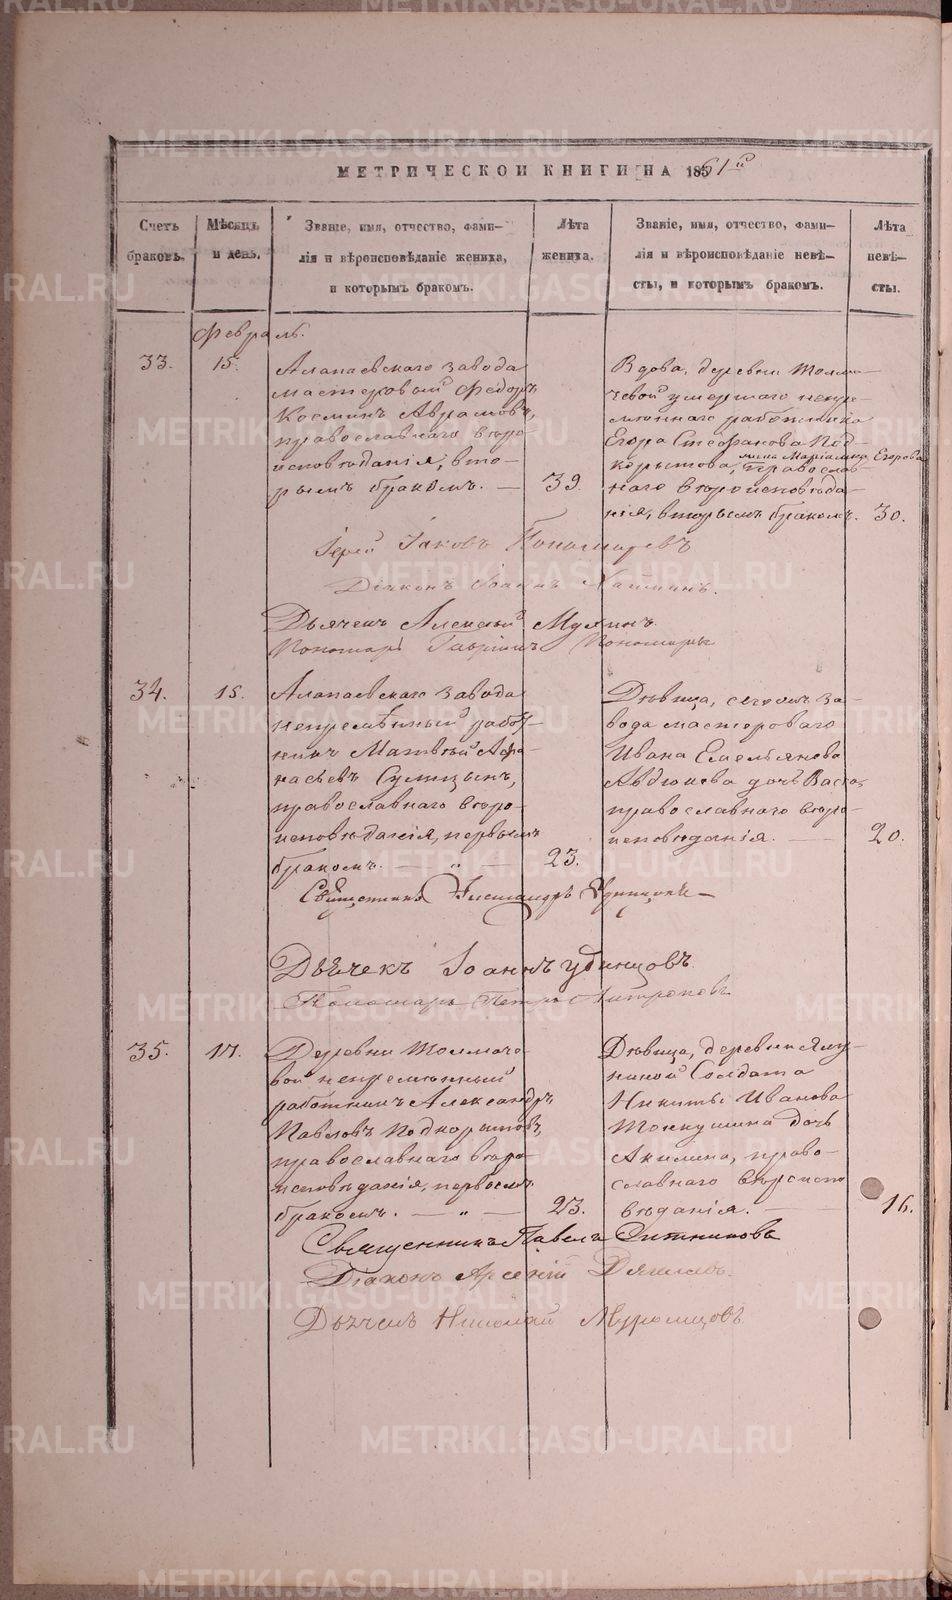 МЕТРИЧЕСКОЙ КНИГИ НА 1861й
Счетъ браковъ.
Мѣсяцъ и день.
Званіе, имя, отчество, фами-
лія и вѣроисповѣданіе жениха,
и которымъ бракомъ.
Лѣта жениха.
Званіе, имя, отчество, фами-
лія и вѣроисповѣданіе невѣ-
сты, и которымъ бракомъ.
Лѣта невѣ-
сты.
Февраль.
33.
15.
Алапаевскаго завода
мастеровый Федоръ
Косминъ Аврамовъ,
православнаго вѣро-
исповѣданія, вто-
рымъ бракомъ. —
39.
Вдова, деревни Толма-
чевой умершаго непре-
мѣннаго работника
Егора Стефанова Под-
корытова, Егорова
православ-
наго вѣроисповѣда-
нія, вторымъ бракомъ.
30.
Іерей Іаковъ Пономаревъ
Діаконъ Іоаннъ
Дьячекъ Алексѣй Мухинъ.
Пономарь Гавріилъ Пономаревъ
34.
15.
Алапаевскаго завода
непремѣнный работ-
никъ Матвѣй Афа-
насьевъ
православнаго вѣро-
исповѣданія, первымъ
бракомъ. — „ —
23.
Дѣвица, сегожъ за-
вода мастероваго
Ивана Емельянова
Авдюкова дочь Васса,
православнаго вѣро-
исповѣданія. —
20.
Священникъ Александръ Удинцовъ
Дьячекъ Іоаннъ Удинцовъ
Пономарь Петръ
35.
17.
Деревни Толмаче-
вой непремѣнный
работникъ Александръ
Павловъ Подкорытовъ,
православнаго вѣро-
исповѣданія, первымъ
бракомъ. — „ —
23.
Дѣвица, деревни Ялу-
ниной Солдата
Никиты Иванова
дочь
Акилина, право-
славнаго вѣроиспо-
вѣданія. —
16.
Священникъ Павелъ Ситниковъ
Діаконъ Арсеній Дягилевъ.
Дьячекъ Николай Муромцовъ
METRIKI.GASO-URAL.RU